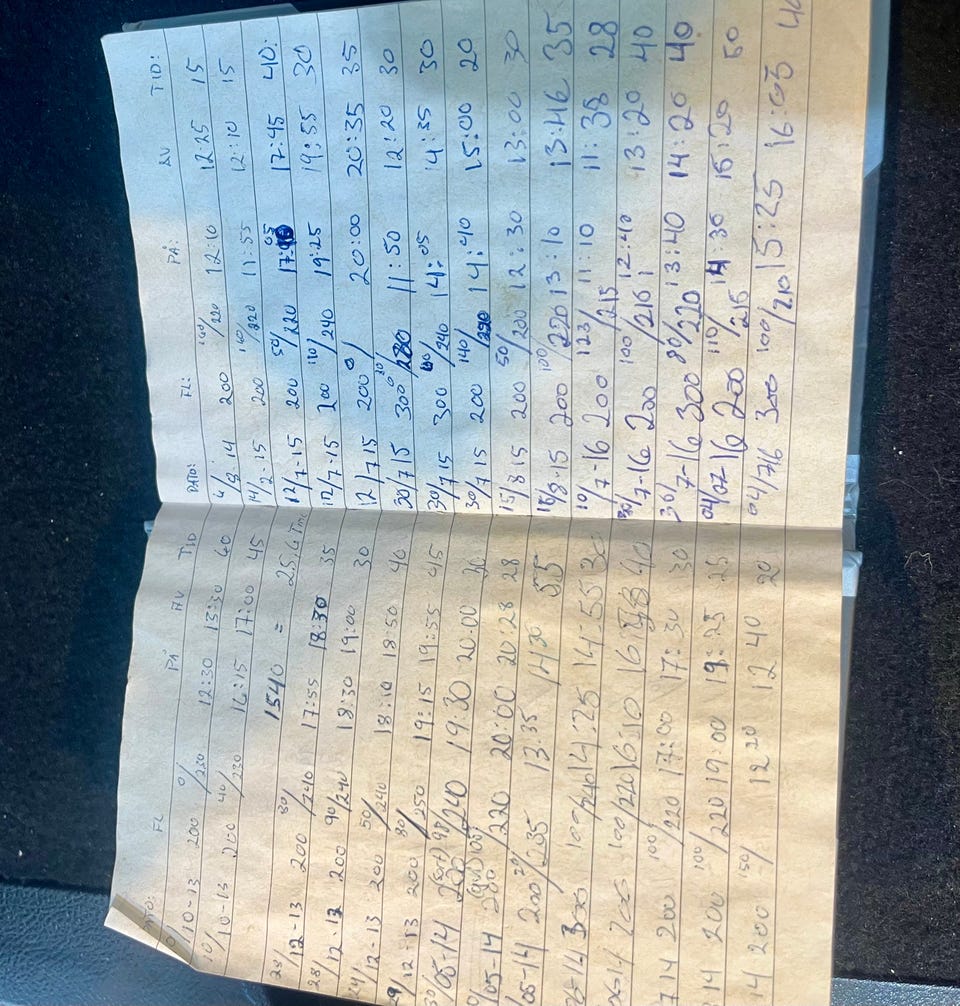 FL PÅ AV TID
10-13 200 0/230 12:30 13:30 60
10-13 200 40/230 16:15 17:00 45
1540 = 25,6
28/12-13 200 30/240 17:55 18:30 35
28/12-13 200 90/240 18:30 19:00 30
12-13 200 50/240 18:10 18:50 40
12-13 200 30/250 19:15 19:55 45
05-14 /240 19:30 20:00 30
05-14 /220 20:00 20:28 28
05-14 200 /235 13:35 55
14 300 100/ 14:25 14:55 30
14 200 100/220 16:10 40
7.14 200 100/220 17:00 17:30 30
14 200 100/220 19:00 19:25 25
14 200 150/ 12 20 12 40 20
DATO: FL: PÅ: AV TID:
4/ 14 200 140/220 12:10 12:25 15
14/2-15 200 140/220 11:55 12:10 15
12/7-15 200 50/220 17:05 17:45 40
12/7-15 200 110/240 19:25 19:55 30
12/7 15 200 0/ 20:00 20:35 35
30/7 15 300 11:50 12:20 30
30/7 15 300 /240 14:05 14:35 30
30/7 15 200 140/220 14:40 15:00 20
15/8 15 200 50/200 12:30 13:00 30
15/8-15 200 100/220 13:10 13:46 35
10/7-16 200 123/ 11:10 11:38 28
7-16 200 100/215 12:40 13:20 40
7-16 300 80/220 13:40 14:20 40
04/07-16 200 110/215 14:30 15:20 50
04/716 300 100/210 15:25 16:05 40